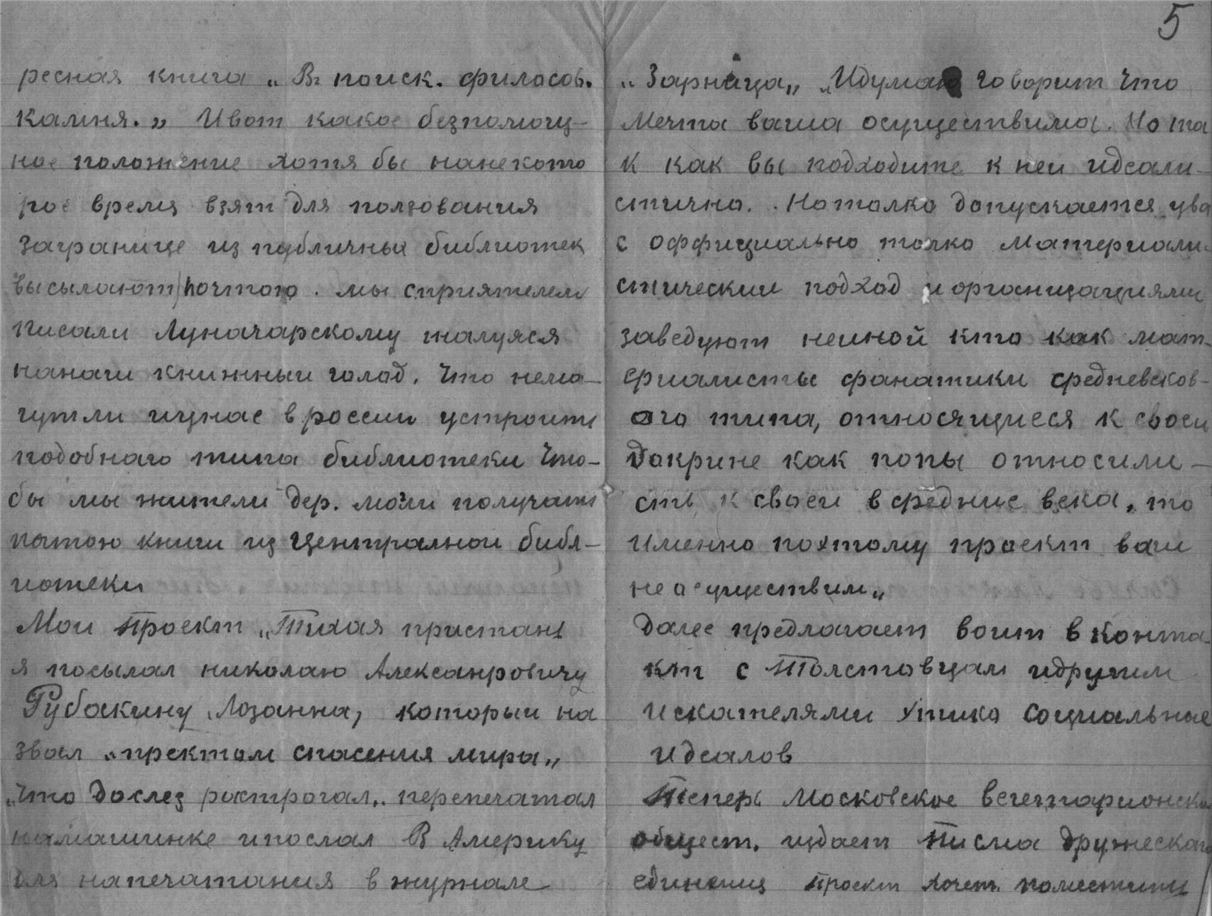 5
ресная книга „В поиск. философ.
Камня.„ Ивот какое безпомощ-
ное положение хотя бы нанекото
рое время взят для ползования
Загранице из публичных библиотек
высылают почтою. мы сприятелем
писали Луначарскому жалуяся
нанаш книжный голод. Что немо-
гутли иунас в россии устроить
подобнаго типа библиотеки Что-
бы мы жители дер. могли получать
почтою книги из Централнои библ-
иотеки
Мои Проект „Тихая пристань
я посылал николаю Александровичу
Рубакину Лозанна, который на
звал „пректом спасения мира„
„Что дослез растрогал„ перепечатал
намашинке ипослал В Америку
для напечатания в журнале
„Зарница„ „Идумаю говорит Что
Мечта ваша осуществима. Но та
к как вы подходите к неи идеали-
стично. Натолко допускается ува
с оффициально толко Материали-
стическии подход и организациями
заведуют неиной кто как мат-
ериалисты фанатики средневеков-
ого типа, относящиеся к своеи
Докрине как попы относили-
сть к своеи в средние века, то
именно поэтому проект ваш
не осуществим„
Далее предлагает воити в конта-
кт с Толстовцам идругим
Искателями Этико Социальные
Идеалов
Теперь Московское вегетарионское
общест. издает Писма дружескаго
единения проект хочет поместить